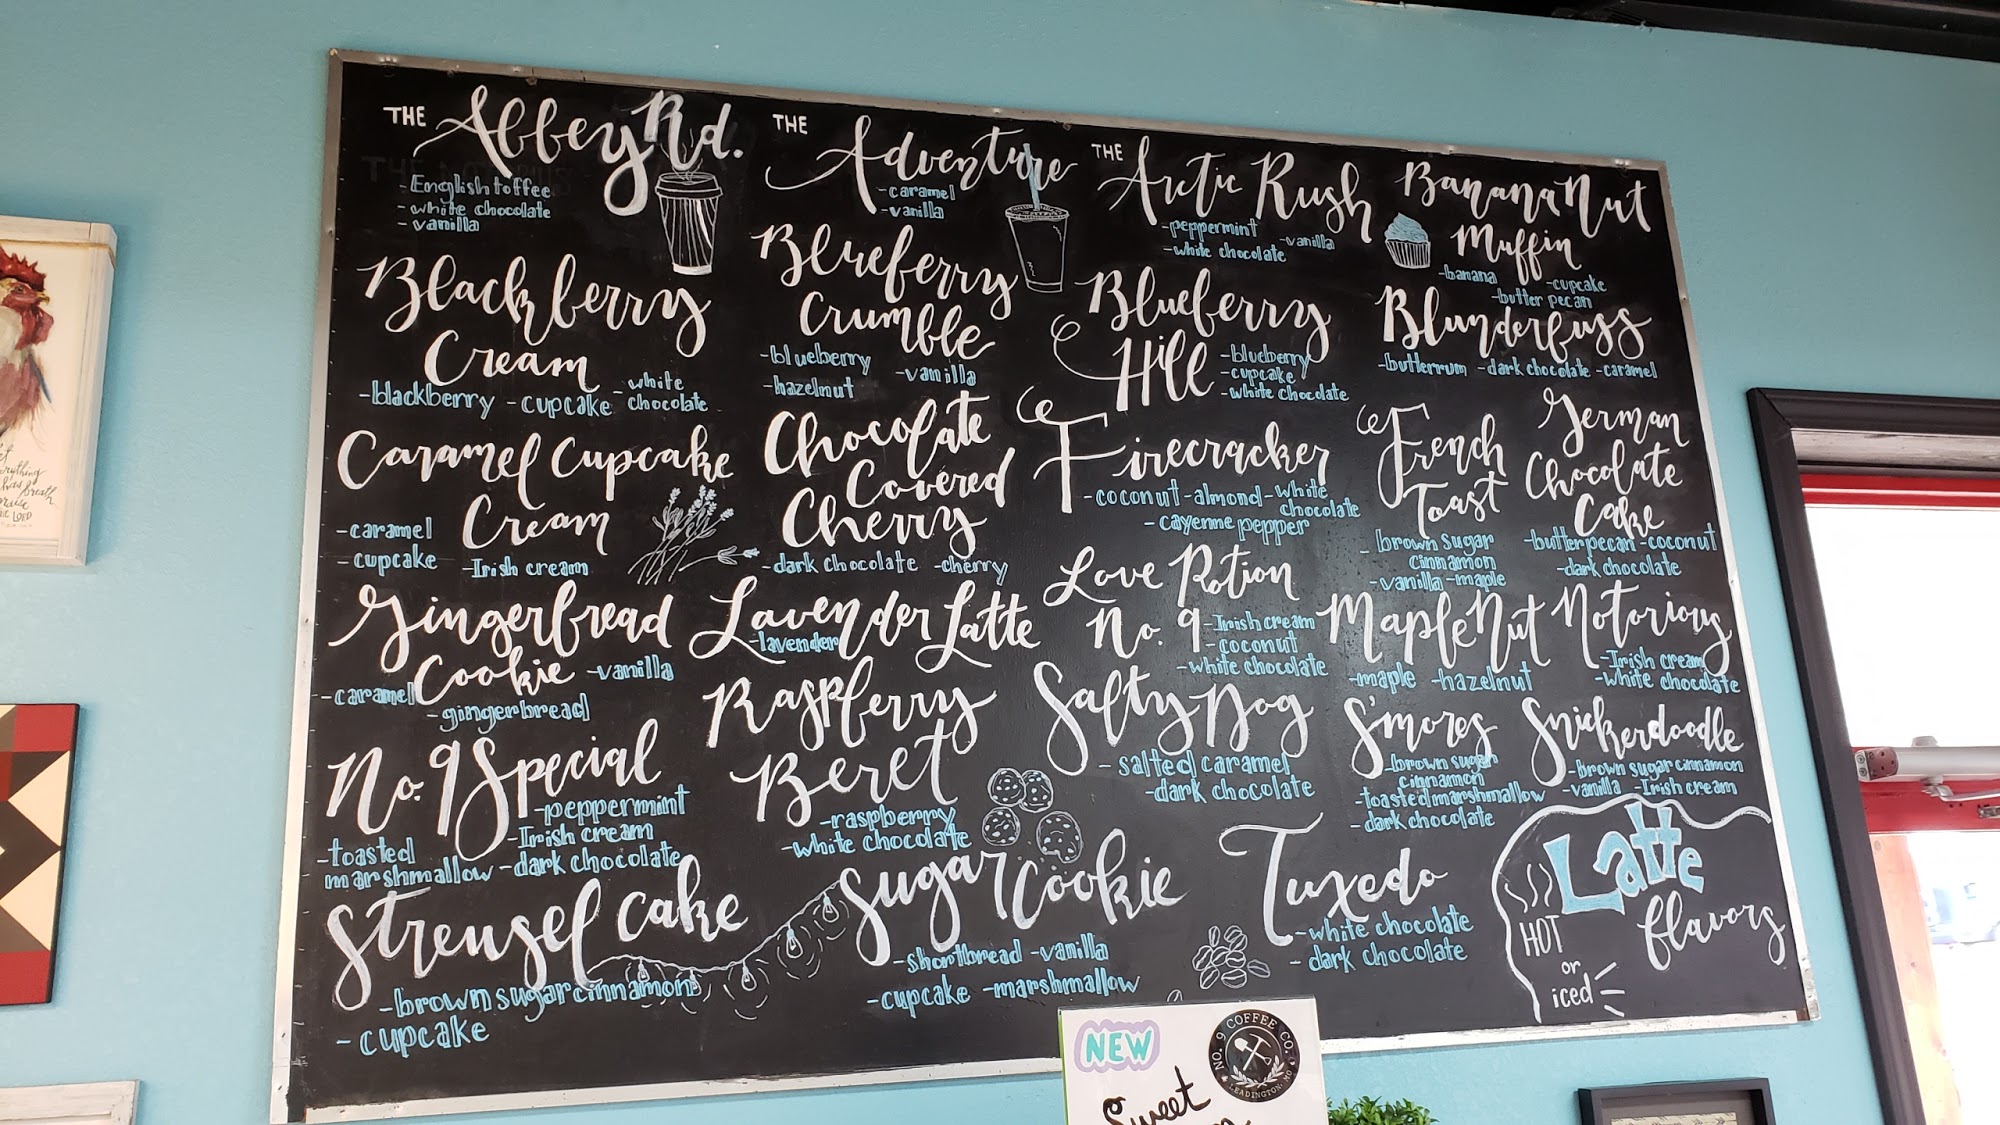 THE Abbey Rd.
- English toffee
- white chocolate
- vanilla
THE Adventure
- caramel
- vanilla
THE Arctic Rush
- peppermint - vanilla
- white chocolate
Banana Nut
Muffin
- banana - cupcake
- butter pecan
Blackberry
Cream
- blackberry - cupcake - white
chocolate
Blueberry
Crumble
- blueberry - vanilla
- hazelnut
Blueberry
Hill
- blueberry
- cupcake
- white chocolate
Blunderfuss
- butterrum - dark chocolate - caramel
Caramel Cupcake
Cream
- caramel
- cupcake - Irish cream
Chocolate
Covered
Cherry
- dark chocolate - cherry
Firecracker
- coconut - almond - white
chocolate
- cayenne pepper
French
Toast
- brown sugar
cinnamon
- vanilla - maple
German
Chocolate
Cake
- butterpecan - coconut
- dark chocolate
Gingerbread
Cookie - vanilla
- caramel
- gingerbread
Lavender Latte
- lavender
Love Potion
No. 9 - Irish cream
- coconut
- white chocolate
Maple Nut
- maple - hazelnut
Notorious
- Irish cream
- white chocolate
No. 9 Special
- peppermint
- Irish cream
- toasted
marshmallow - dark chocolate
Raspberry
Beret
- raspberry
- white chocolate
Salty Dog
- salted caramel
- dark chocolate
S'mores
- brown sugar
cinnamon
- toasted marshmallow
- dark chocolate
Snickerdoodle
- brown sugar cinnamon
- vanilla - Irish cream
Streusel Cake
- brown sugar cinnamon
- cupcake
Sugar Cookie
- shortbread - vanilla
- cupcake - marshmallow
Tuxedo
- white chocolate
- dark chocolate
Latte
flavors
HOT
or
iced
NEW
NO. 9 COFFEE CO.
LEADINGTON, MO
Sweet
breath
LORD